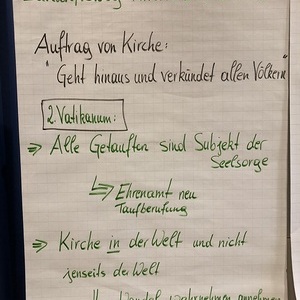 Auftrag von Kirche:
"Geht hinaus und verkündet allen Völkern"
2. Vatikanum:
⇒ Alle Getauften sind Subjekt der
Seelsorge
↳ Ehrenamt neu
Taufberufung
⇒ Kirche in der Welt und nicht
jenseits der Welt
Wandel wahrnehmen annehmen